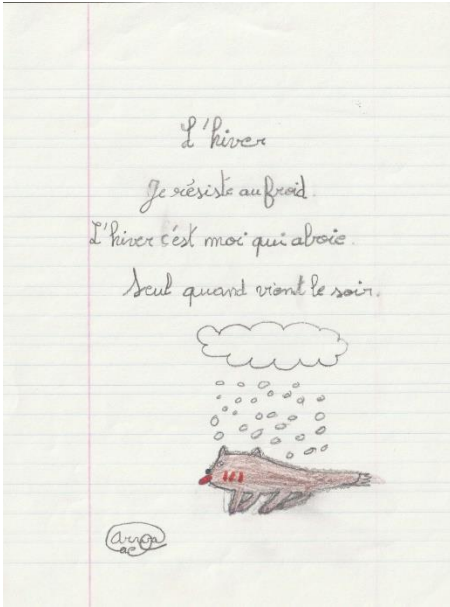 L'hiver
Je résiste au froid.
L'hiver c'est moi qui aboie.
Seul quand vient le soir.